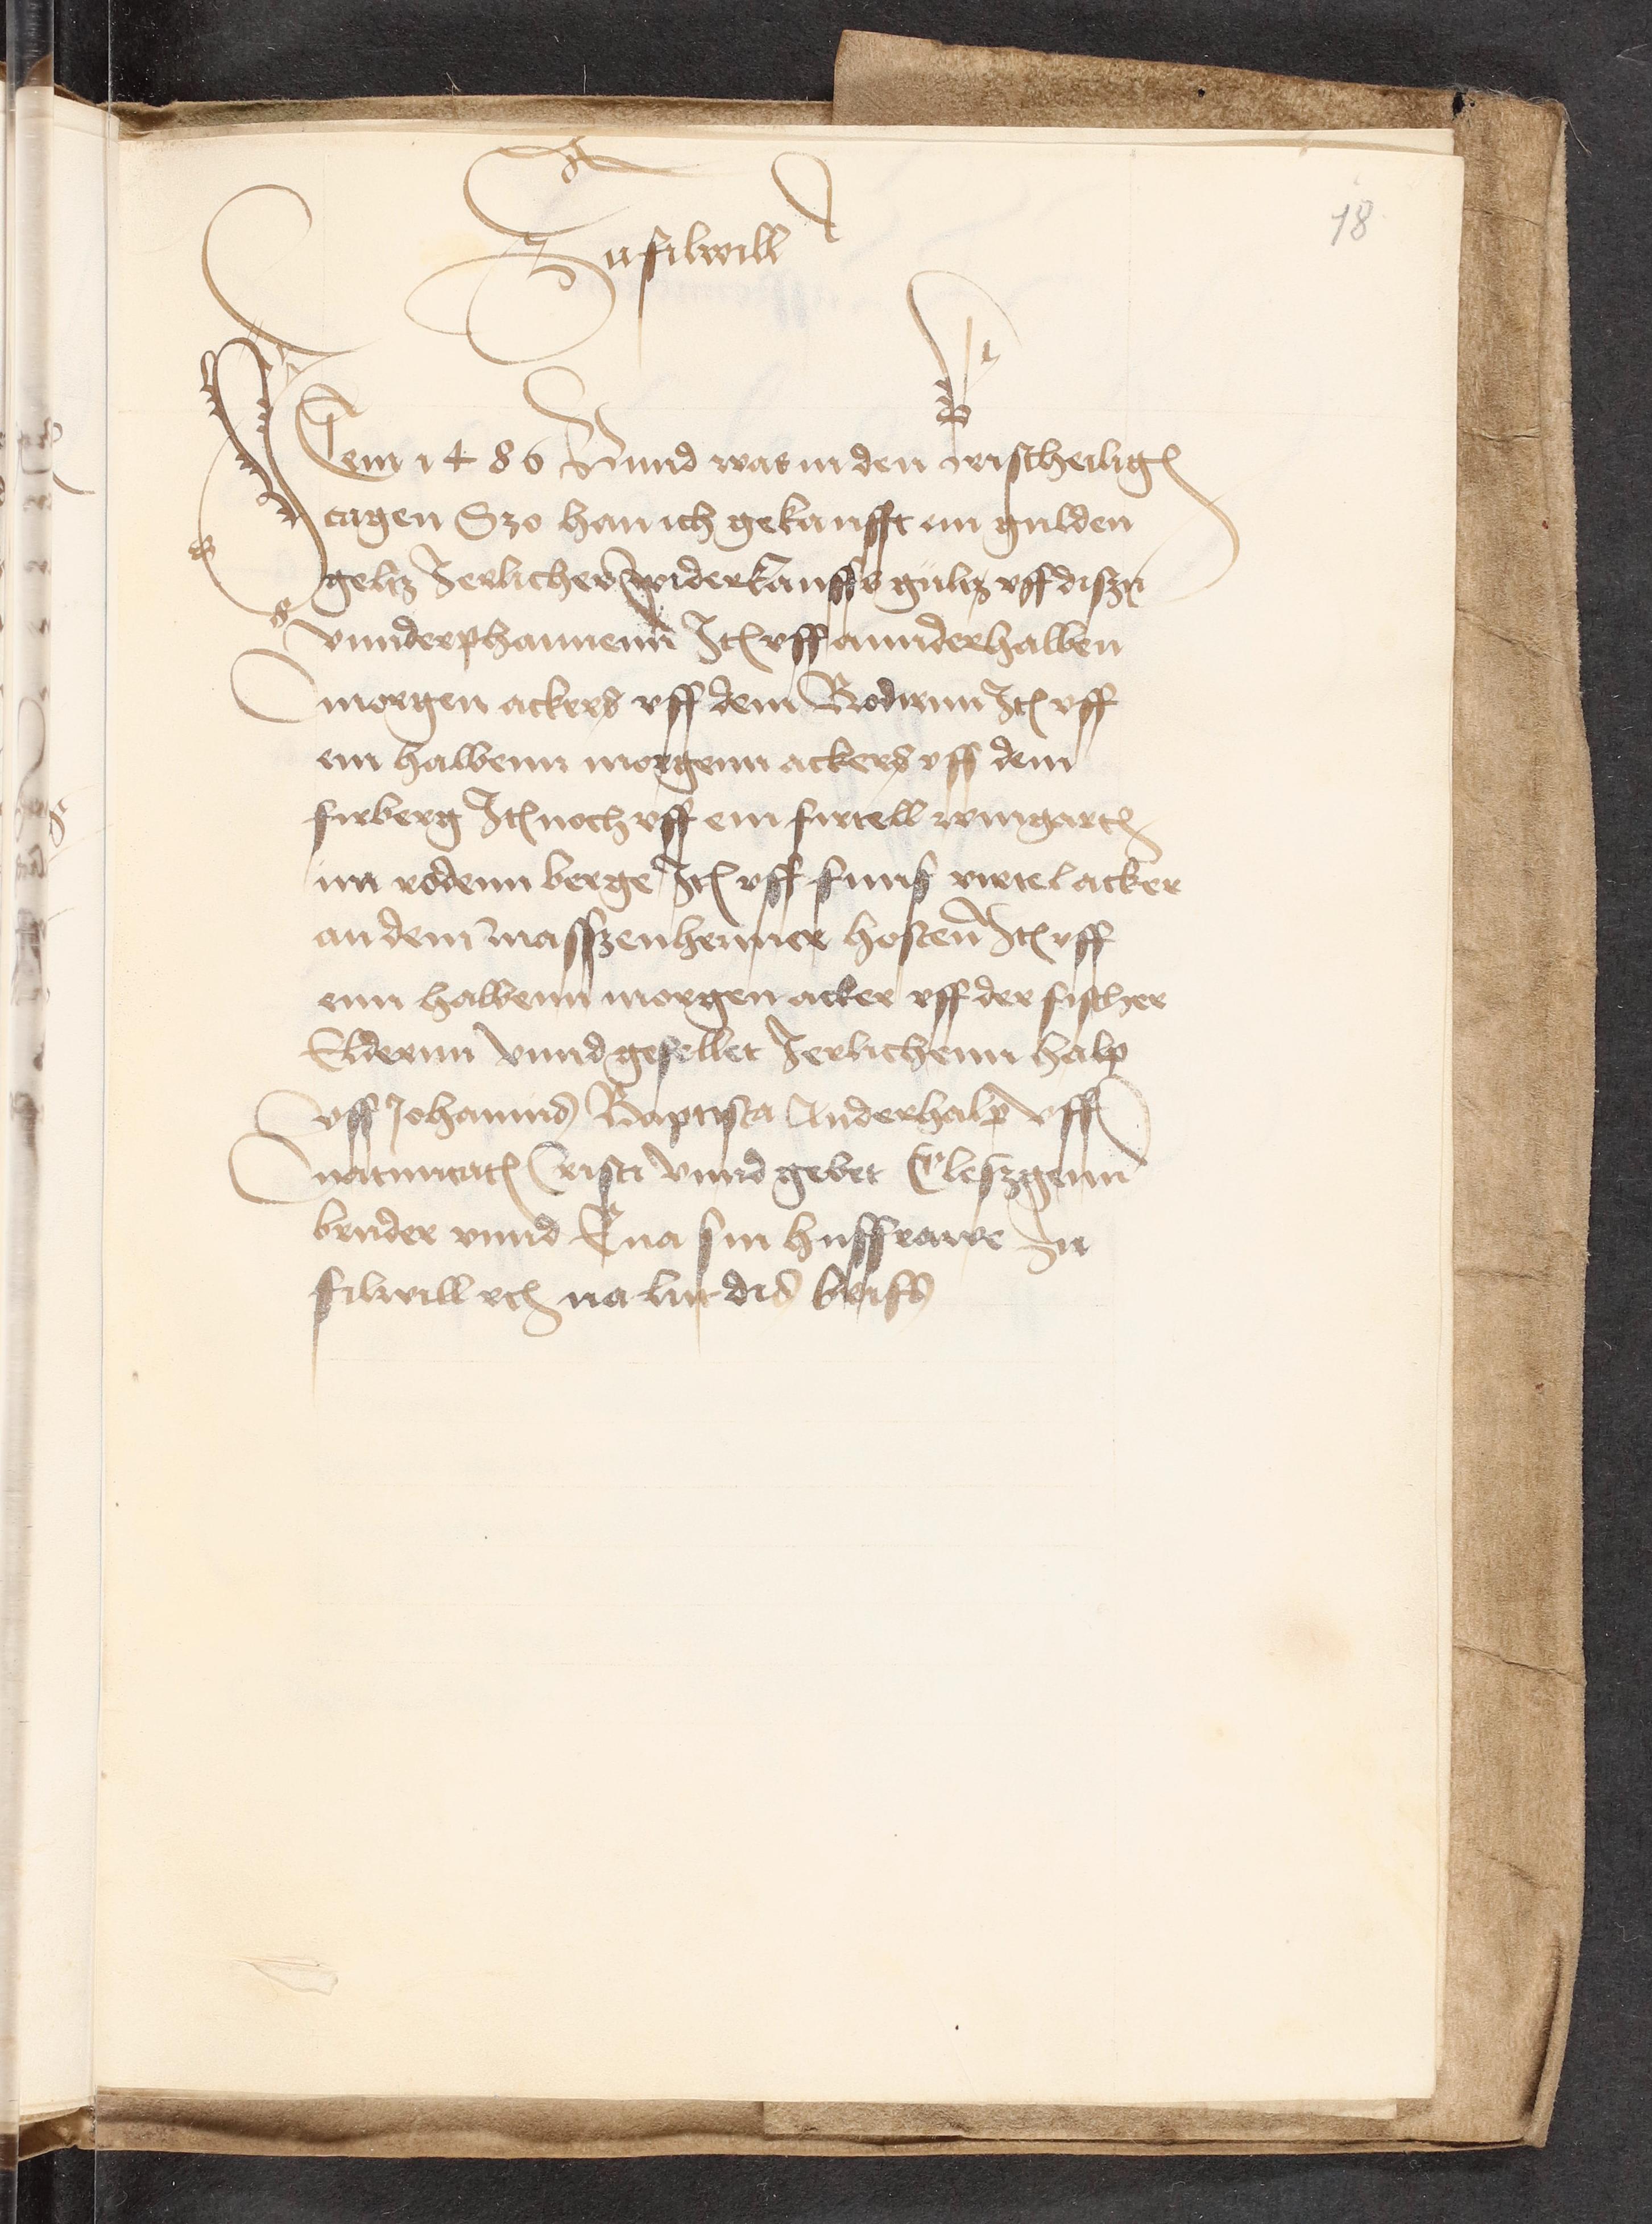 18
Zu filwill
Item 1486 Vnnd was in den cristheilig
tagen Szo han ich gekaufft ein gulden
geltz Jerlicher widerkauffs gultz vff diszn
vnnderphannenn Jt vff annderhalben
morgen ackers vff dem Rodwnn Jt vff
ein halbenn morgenn ackers vff dem
firberg Jt noch vff ein firtell wingart
im rodenn berge Jt vff funf virtel acker
an dem masszenheimer hosten Jt vff
einn halbenn morgen acker vff der fischer
Eldernn vnnd gefellet Jerlichenn halp
vff Johannis Baptista Anderhalp vff
natiuitat Cristi vnnd gebet Cleszgenn
bruder vnnd Eua sin huffrawe Zu
filwill etc na lut dis briffs